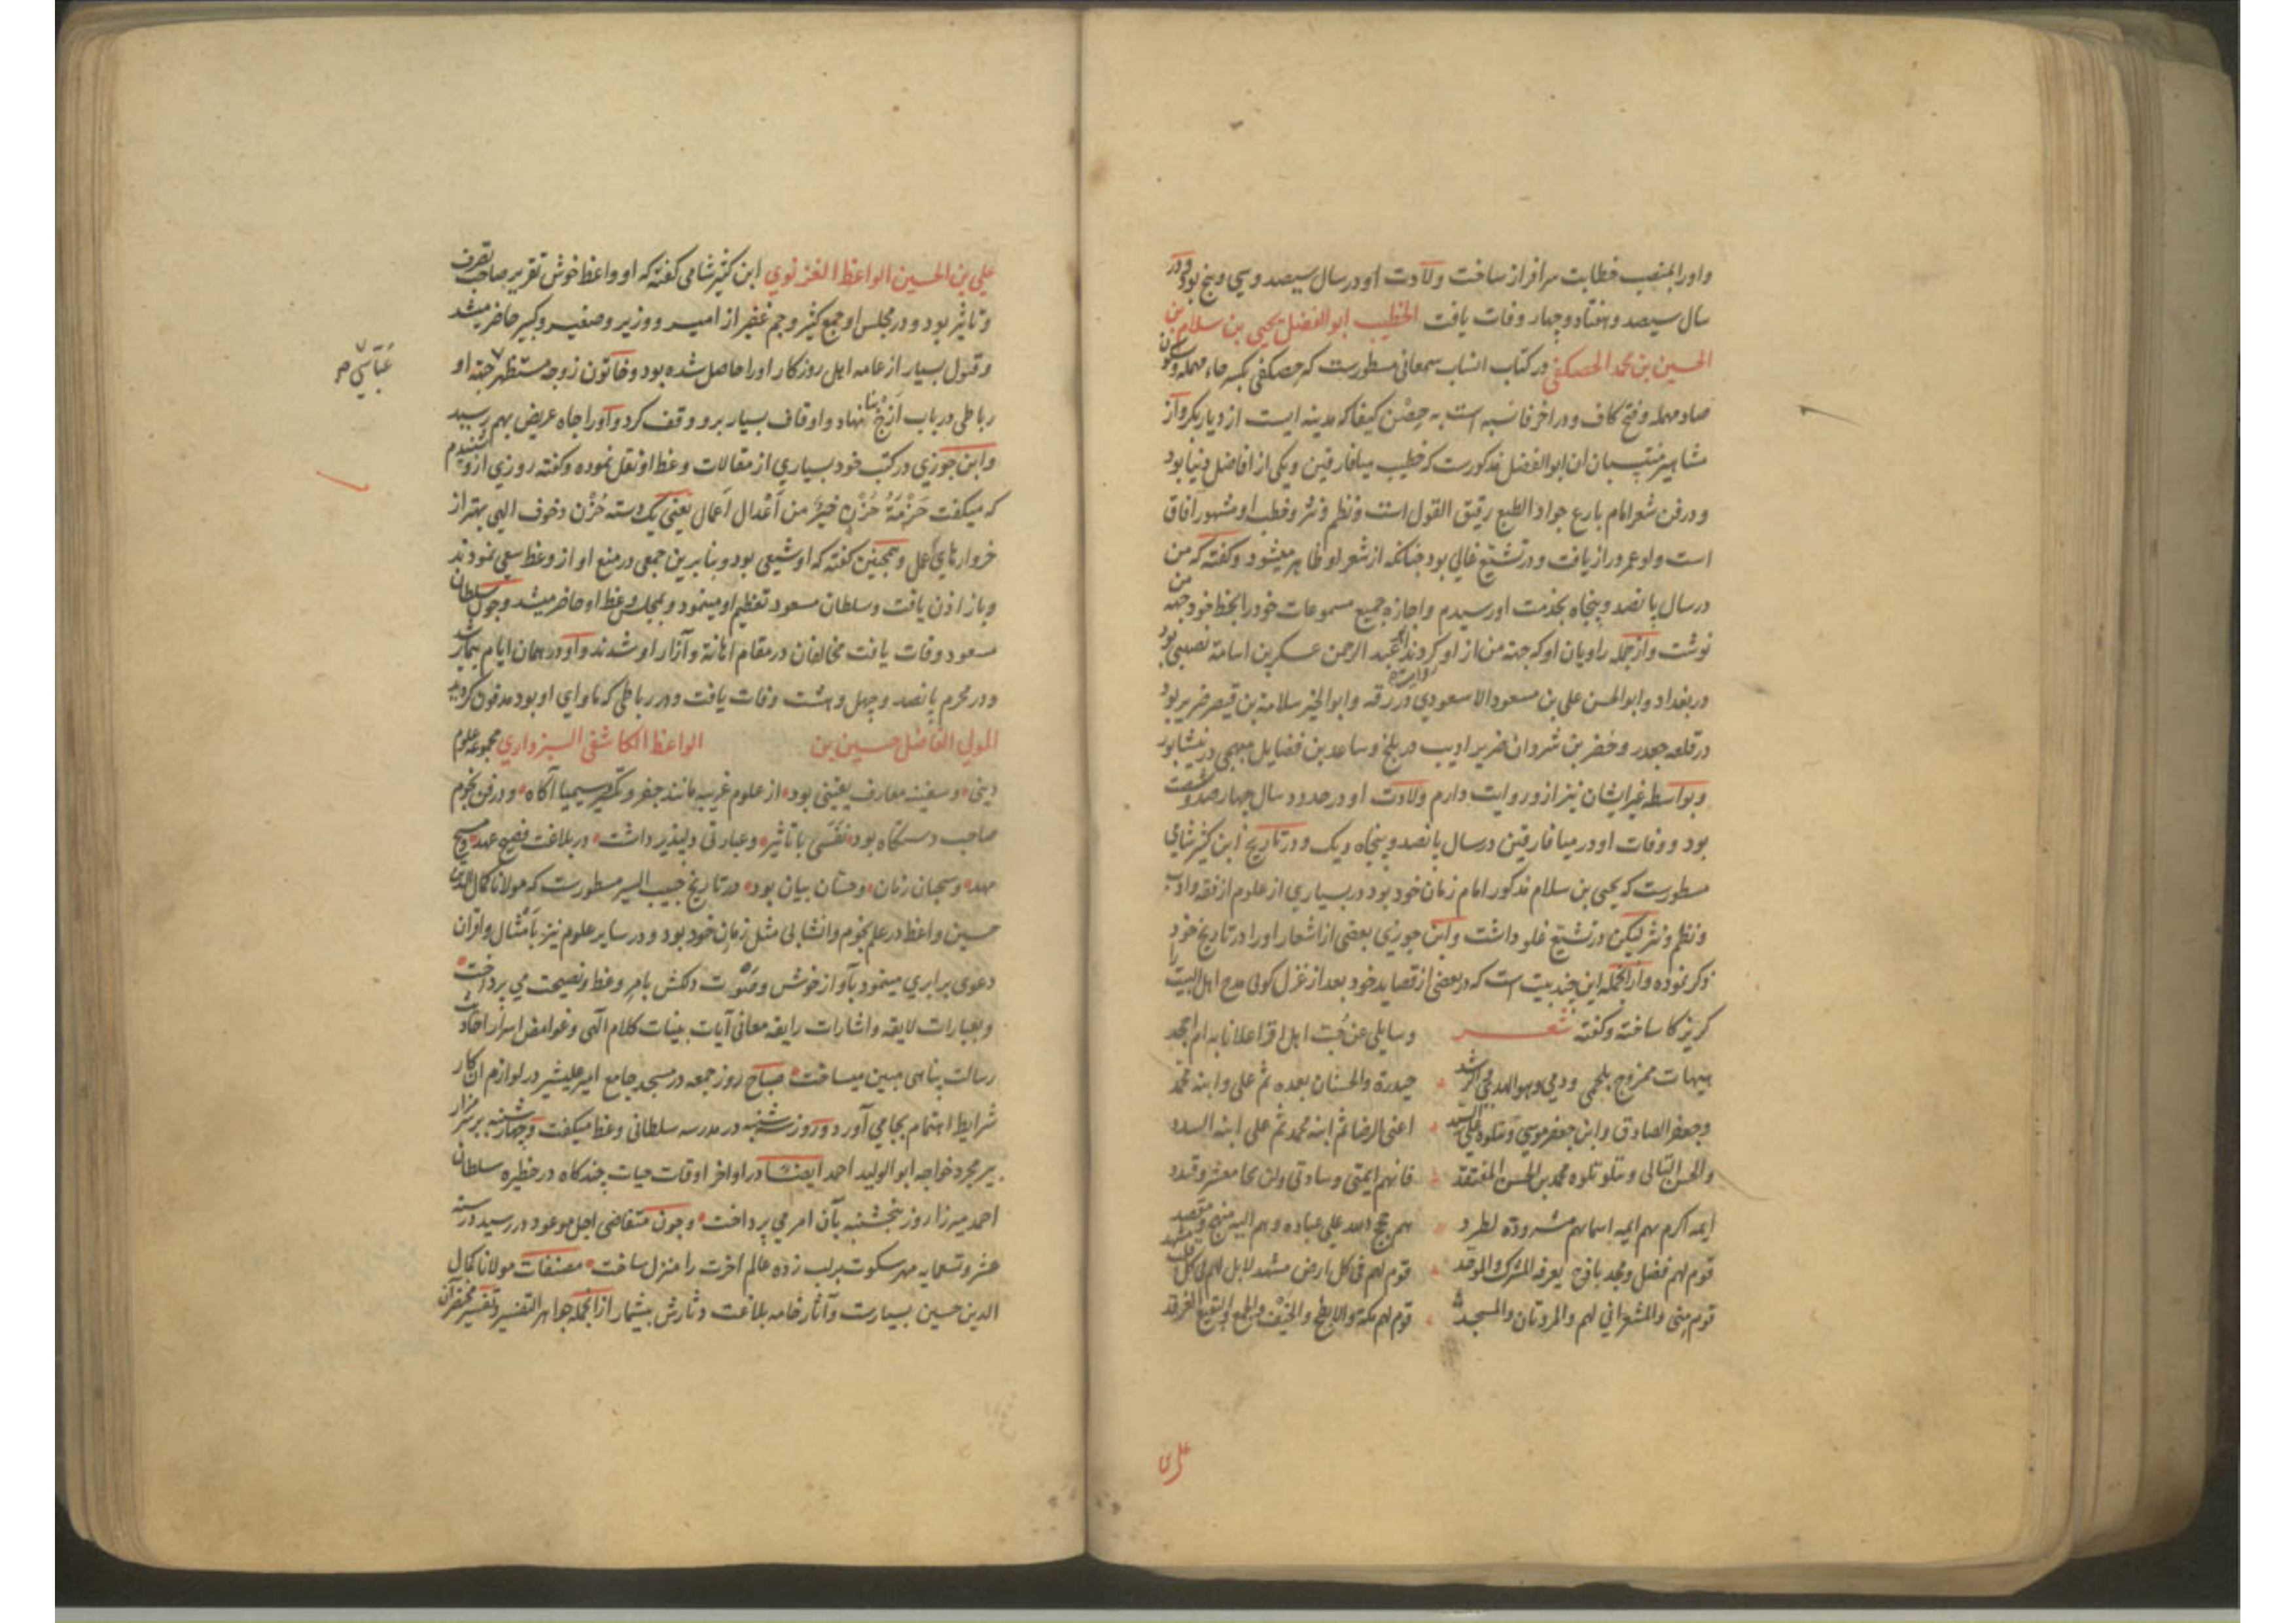 واورا بمنصب خطابت سرافراز ساخت ولادت او در سال سیصد وسی وپنج بود ودر
سال سیصد وهفتاد وچهار وفات یافت الخطیب ابوالفضل یحیی بن سلام بن
الحسین بن محمد الحصکفی در کتاب انساب سمعانی مسطورست که حصکفی بکسر حاء مهمله وسکون
صاد مهمله وفتح کاف ودر اخر فا نسبه است به حِصْن کیفا که مدینه ایست از دیار بکر واز
مشاهیر منتسبان ان ابوالفضل مذکورست که خطیب میافارقین ویکی از افاضل دنیا بود
ودر فن شعر امام بارع جواد الطبع رقیق القول است ونظم ونثر وخطب او مشهور افاق
است واو عمر دراز یافت ودر تشیّع غالی بود چنانکه از شعر او ظاهر میشود وکفته که من
در سال پانصد وپنجاه بخدمت او رسیدم واجازه جمیع مسموعات خود را بخط خود جهه من
نوشت وازجمله راویان او که جهه من از او روایت کردند عبد الرحمن عسکر بن اسامة نصیبی بود
در بغداد وابوالحسن علی بن مسعود الاسعودی در رقه وابوالخیر سلامة بن قیصر ضریر بود
در قلعه جعبر وخضر بن شروان ضریر ادیب در بلخ وساعد بن فضایل منبجی در نیشابور
وبواسطه غیر ایشان نیز از و روایت دارم ولادت او در حدود سال چهارصد وشصت
بود ووفات او در میافارقین در سال پانصد وپنجاه ویک ودر تاریخ ابن کثیر شامی
مسطورست که یحیی بن سلام مذکور امام زمان خود بود در بسیاری از علوم از فقه وادب
ونظم ونثر لیکن در تشیّع غلو داشت وابن جوزی بعضی از اشعار اورا در تاریخ خود
ذکر نموده وازانجمله این چند بیت است که در بعضی از قصاید خود بعد از غزل کوئی مدح اهل البیت را
کریزکا ساخته وکفته شعر وسایلی عن حُبّ اهل اقرا اعلانا به ام اجحد
هیهات ممزوج بلحمی ودمی وهو الهدی والرشد حیدرة والحسنان بعده ثم علی وابنه محمد
وجعفر الصادق وابن جعفر موسی ویتلوه علی السید اعنی الرضا ثم ابنه محمد ثم علی ابنه المسدد
والحسن التالی ویتلو تلوه محمد بن الحسن المفتقد فانهم ایمتی وسادتی وان لحا معشر وفندد
ایمه اکرم بهم ایمه اسماهم مسرودة تطرد هم حجج الله علی عباده وهم الیه منهج ومقصد
قوم لهم فضل ومجد باذخ یعرفه المشرک والموحد قوم لهم فی کل ارض مشهد لابل لهم فی کل قلب مشهد
قوم منی والمشعران لهم والمروتان والمسجد قوم لهم مکة والابطح والخیف وجمع والبقیع الغرقد
علی بن
علی بن الحسین الواعظ الغزنوی ابن کثیر شامی کفته که او واعظ خوش تقریر صاحب تصرف
وتاثیر بود ودر مجلس او جمع کثیر وجم غفیر از امیر ووزیر وصغیر وکبیر حاضر میشد
وقبول بسیار از عامه اهل روزکار اورا حاصل شده بود وخاتون زوجه مستظهر جهته او
عباسی صح
رباطی در باب اَزَج بنا نهاد واوقاف بسیار برو وقف کرد واورا جاه عریض بهم رسید
وابن جوزی در کتب خود بسیاری از مقالات وعظ او نقل نموده وکفته روزی ازو شنیدم
که میکفت حَزْمَةُ حُزْنٍ خیرٌ من اَعْدال اَعمال یعنی یک دسته حُزْن وخوف الهی بهتر از
خروارهای عمل وهمچنین کفته که او شیعی بود وبنابرین جمعی در منع او از وعظ سعی نمودند
وباز اذن یافت وسلطان مسعود تعظیم او مینمود وبمجلس وعظ او حاضر میشد وچون سلطان
مسعود وفات یافت مخالفان در مقام اهانة وآزار او شدند واو در همان ایام بیمار شد
ودر محرم پانصد وچهل وهشت وفات یافت ودر رباطی که ماوای او بود مدفون کردید
المولی الفاضل حسین بن الواعظ الکاشفی السبزواری مجموعه علوم
دینی وسفینه معارف یقینی بود از علوم غریبه مانند جفر وتکسیر وسیمیا آکاه ودر فن نجوم
صاحب دستکاه بود نفَسَی باتاثیر وعبارتی دلپذیر داشت در بلاغت فصیح عهد ومسیح
مهد وسحبان زمان وحسّان بیان بود در تاریخ حبیب السیر مسطورست که مولانا کمال الدین
حسین واعظ در علم نجوم وانشا بی مثل زمان خود بود ودر سایر علوم نیز بامثال واقران
دعوی برابری مینمود بآواز خوش وصَوْت دلکش بامر وعظ ونصیحت می پرداخت
وبعبارات لایقه واشارات رایقه معانی آیات بینات کلام الهی وغوامض اسرار احادیث
رسالت پناهی مبین میساخت صباح روز جمعه در مسجد جامع امیر علیشیر در لوازم ان کار
شرایط اهتمام بجا می آورد وروز سه شنبه در مدرسه سلطانی وعظ میکفت وچهارشنبه بر سر مزار
پیر مجرد خواجه ابوالولید احمد ایضا در اواخر اوقات حیات چندکاه در حظیره سلطان
احمد میرزا روز پنجشنبه بآن امر می پرداخت وچون متقاضی اجل موعود در رسید در سنه
عشر وتسعمایه مهر سکوت بر لب زده عالم اخرت را منزل ساخت مصنفات مولانا کمال
الدین حسین بسیارست وآثار خامه بلاغت دثارش بیشمار ازانجمله جواهر التفسیر وتفسیر مختصر آن